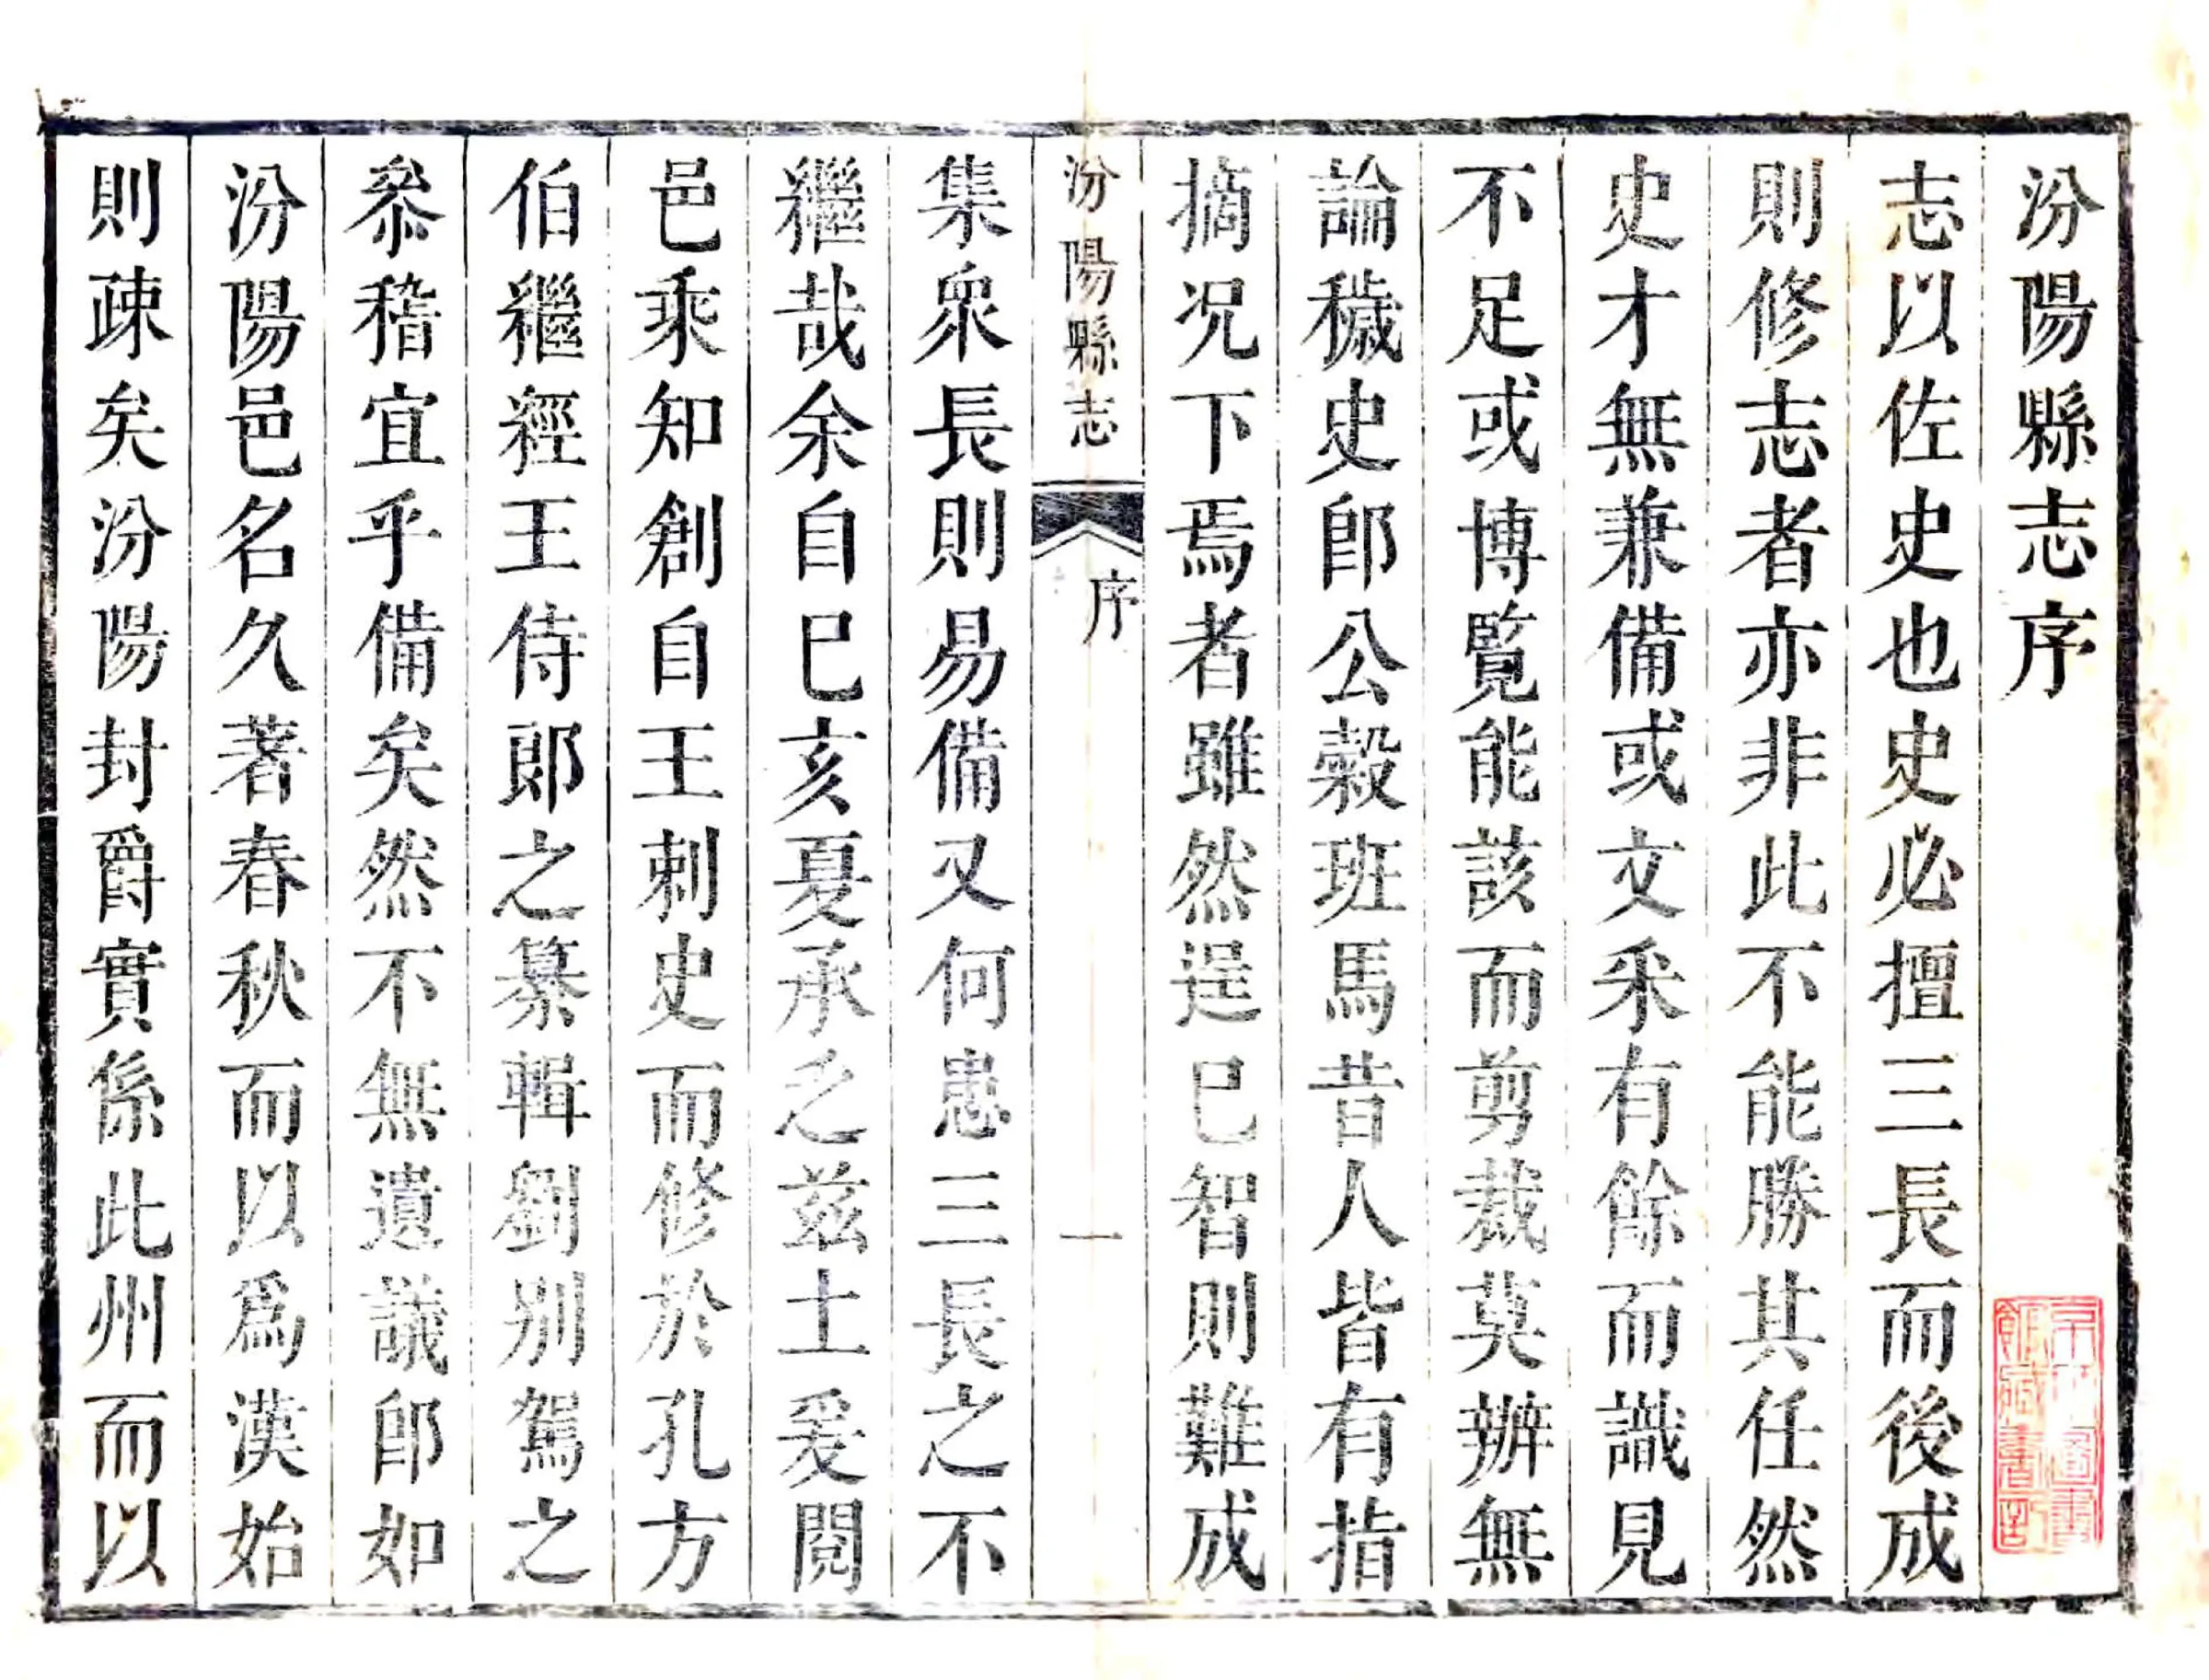 汾陽縣志序
志以佐史也史必擅三長而後成
則修志者亦非此不能勝其任然
史才無兼備或文采有餘而識見
不足或博覧能該而剪裁莫辨無
論穢史卽公穀班馬昔人皆有指
摘况下焉者雖然逞巳智則難成
汾陽縣志
序
一
集衆長則易備又何患三長之不
繼哉余自巳亥夏承乏兹土爰閱
邑乘知創自王刺史而修於孔方
伯繼經王侍郎之纂輯劉别駕之
叅稽宜乎備矣然不無遺議卽如
汾陽邑名久著春秋而以爲漢始
則疎矣汾陽封爵實係此州而以